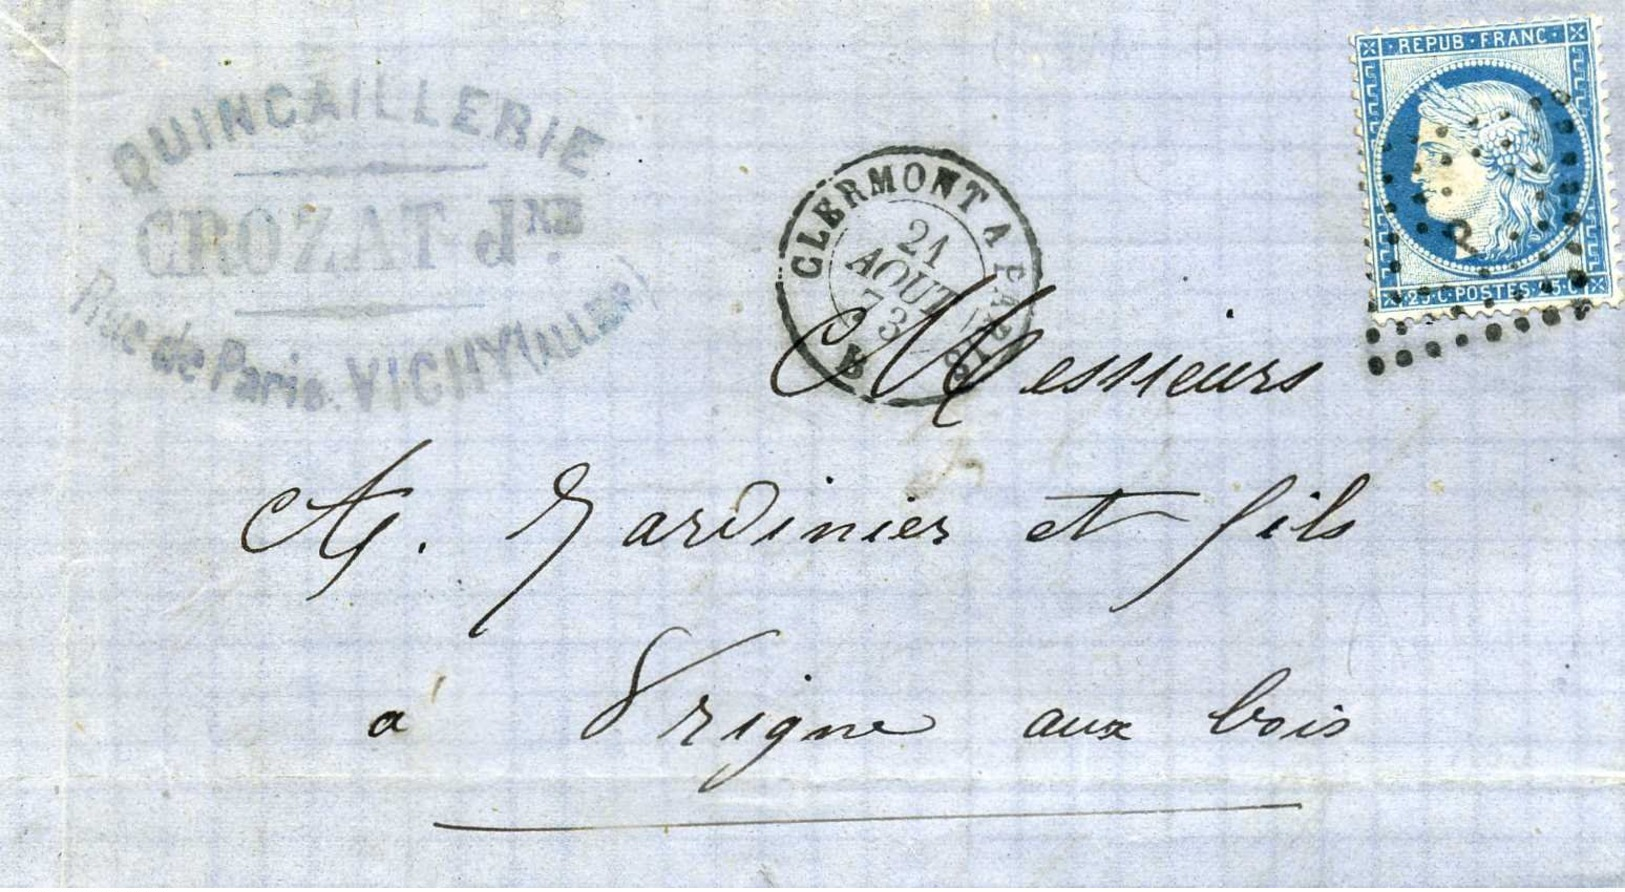 QUINCAILLERIE
CROZAT JNE
Rue de Paris. VICHY (ALLIER)
CLERMONT A PARIS
21
AOUT
73
REPUB·FRANC·
25·C·POSTES·25·C
Messieurs
G. Jardinier et fils
a Vrigne aux bois